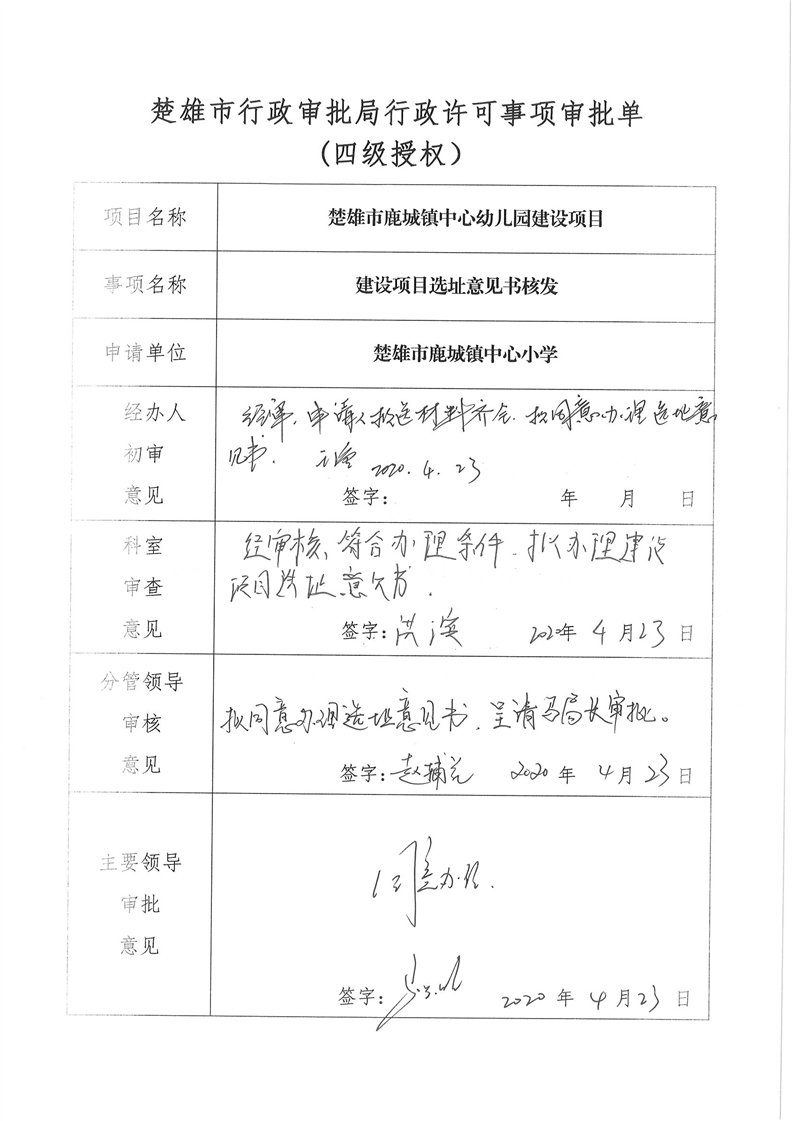 楚雄市行政审批局行政许可事项审批单
(四级授权)
项目名称 楚雄市鹿城镇中心幼儿园建设项目
事项名称 建设项目选址意见书核发
申请单位 楚雄市鹿城镇中心小学
经办人
初审
意见
经审,申请人报送材料齐全.拟同意办理选址意
见书.
2020.4.23
签字: 年 月 日
科室
审查
意见
经审核、符合办理条件.拟办理建设
项目选址意见书.
签字:洪滨 2020年4月23日
分管领导
审核
意见
拟同意办理选址意见书,呈请马局长审批。
签字:赵辅 2020年4月23日
主要领导
审批
意见
同意办理.
签字: 2020年4月23日